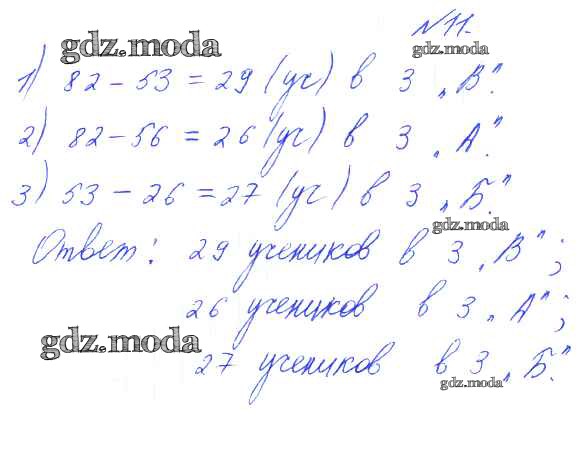 № 11.
gdz.moda gdz.moda
1) 82 - 53 = 29 (уч) в 3 „В".
2) 82 - 56 = 26 (уч) в 3 „А".
3) 53 - 26 = 27 (уч) в 3 „Б."
gdz.moda
Ответ: 29 учеников в 3 „В";
26 учеников в 3 „А";
gdz.moda
27 учеников в 3 „Б".
gdz.moda